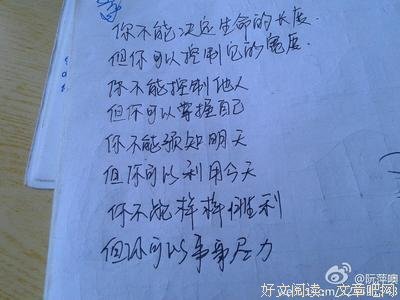 你不能决定生命的长度.
但你可以控制它的宽度.
你不能控制他人
但你可以掌握自己
你不能预知明天
但你可以利用今天
你不能样样胜利
但你可以事事尽力
@阮萍噢
好文阅读-文章吧网